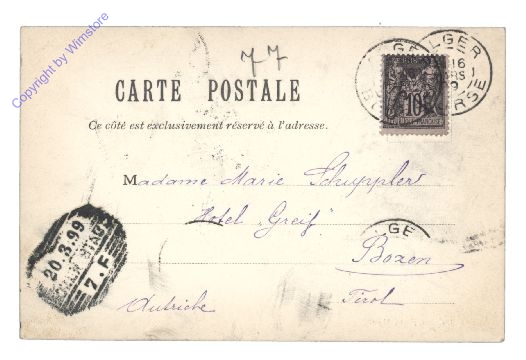 Copyright by Winstore
77
ALGER
16
BOURSE
10
CARTE POSTALE
Ce côté est exclusivement réservé à l'adresse.
Madame Marie Schuppler
Hotel „Greif"
Bozen
Tirol
Autriche
20.3.99
7.F